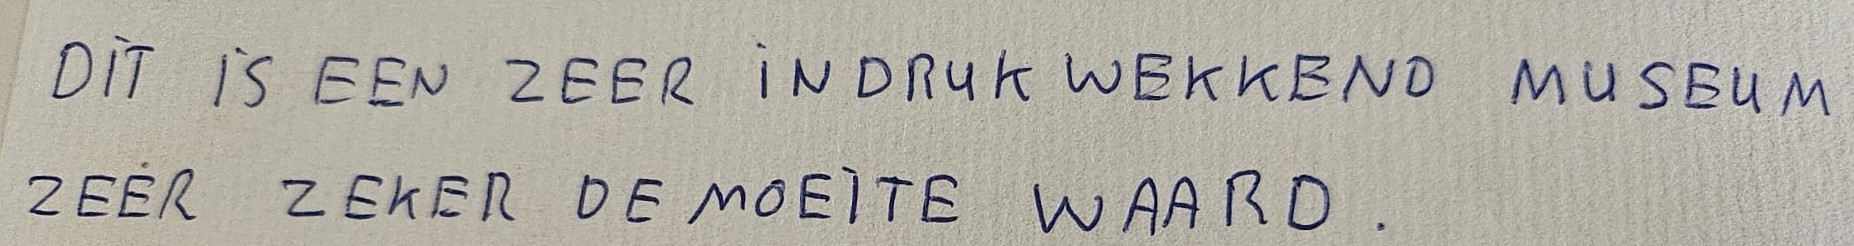 DIT IS EEN ZEER INDRUKWEKKEND MUSEUM
ZEER ZEKER DE MOEITE WAARD.